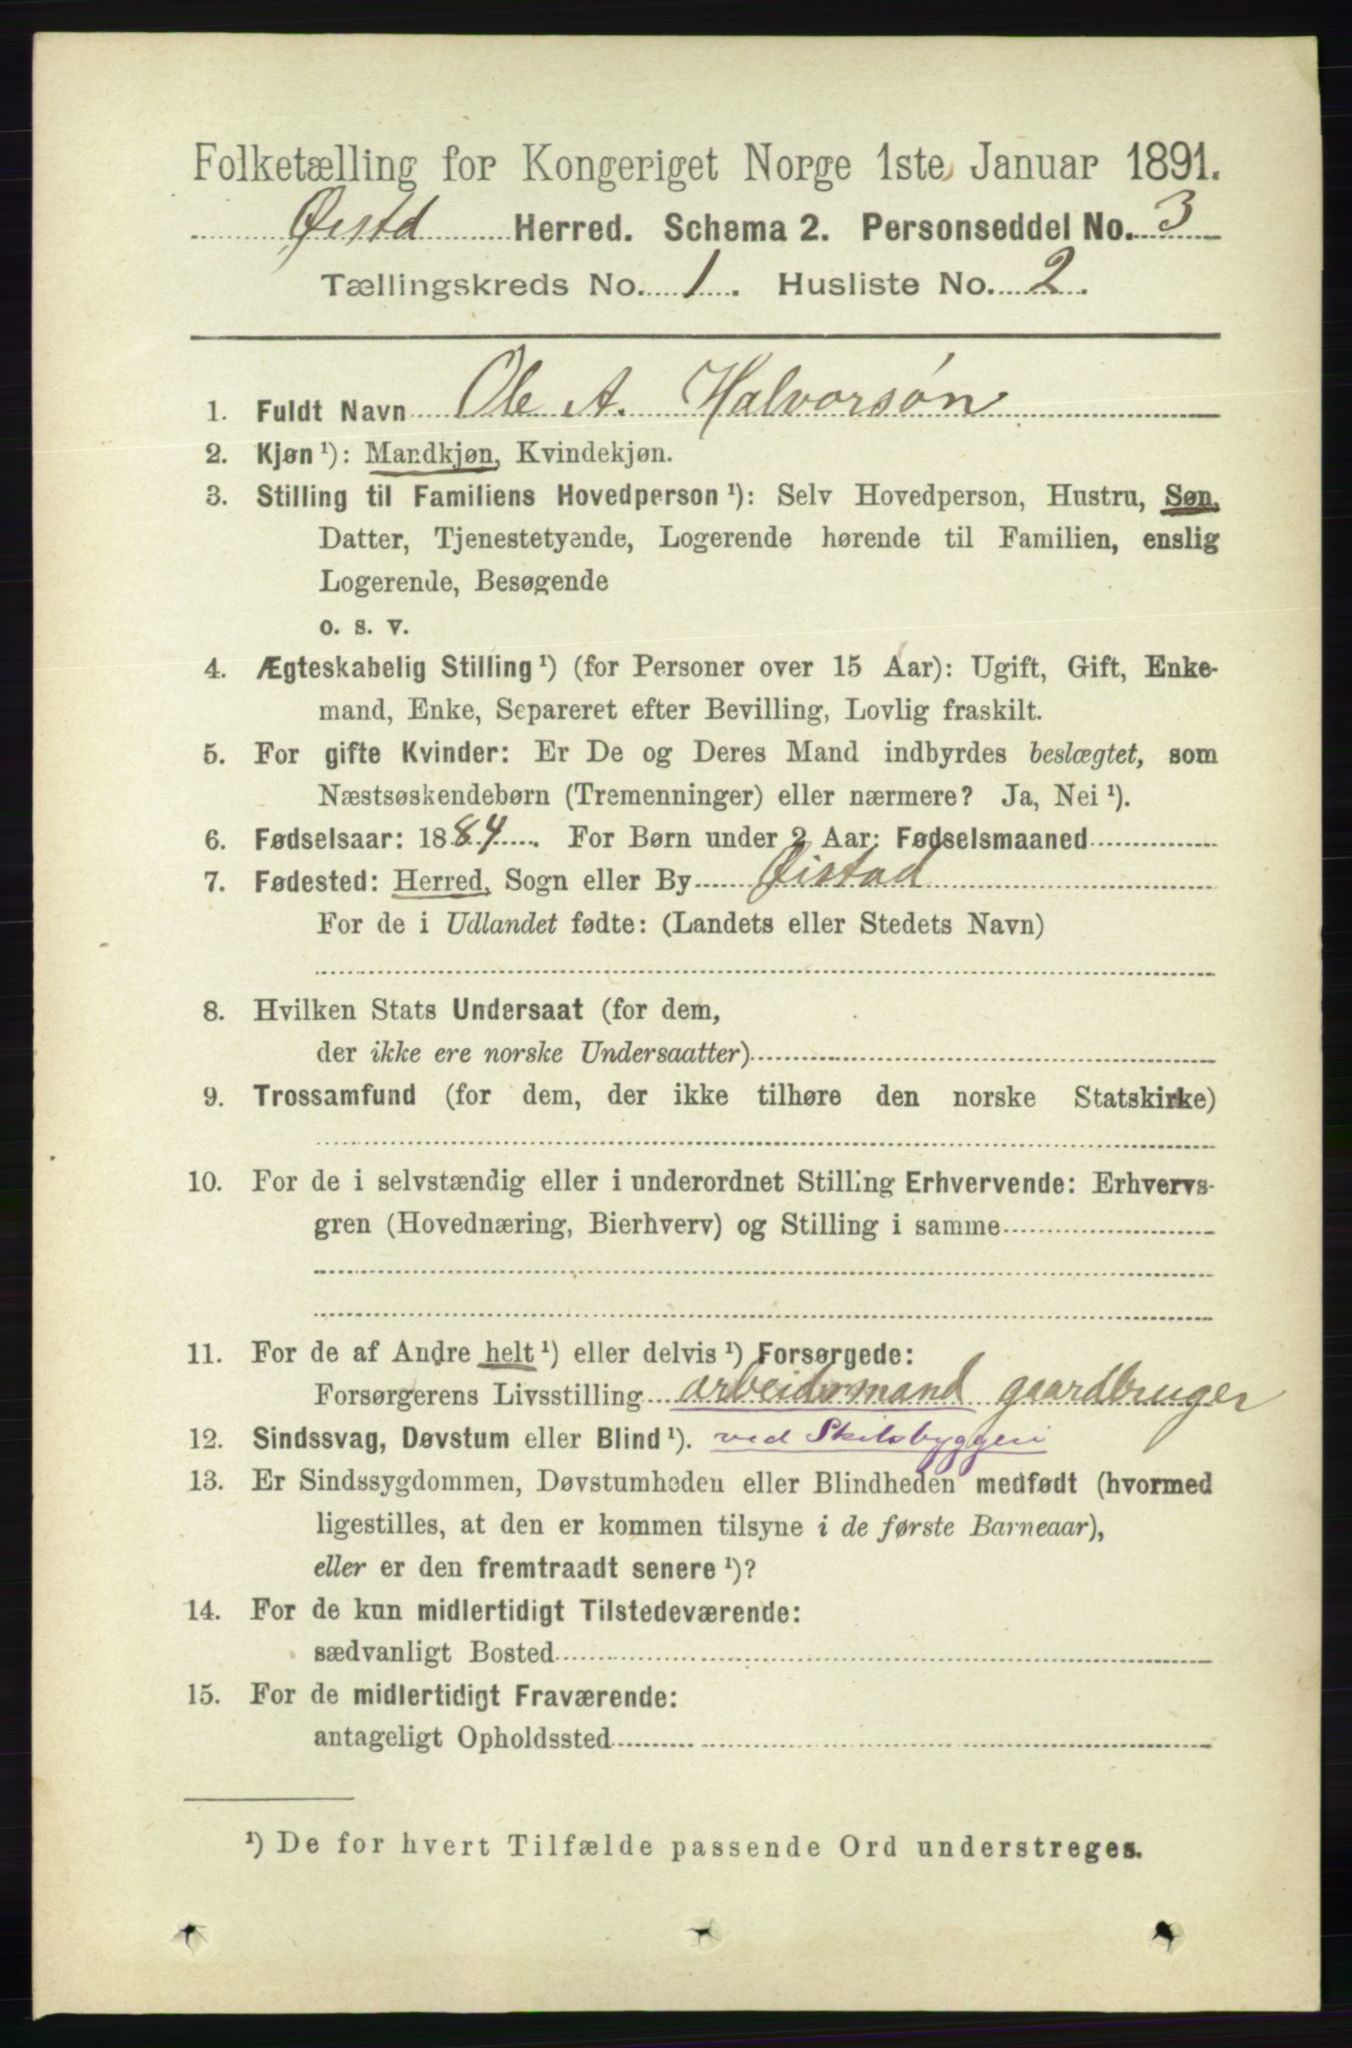 Folketælling for Kongeriget Norge 1ste Januar 1891.
Øistd Herred. Schema 2. Personseddel No. 3
Tællingskreds No. 1. Husliste No. 2.
1. Fuldt Navn Ole A. Halvorsøn
2. Kjøn ¹): Mandkjøn, Kvindekjøn.
3. Stilling til Familiens Hovedperson ¹): Selv Hovedperson, Hustru, Søn,
Datter, Tjenestetyende, Logerende hørende til Familien, enslig
Logerende, Besøgende
o. s. v.
4. Ægteskabelig Stilling ¹) (for Personer over 15 Aar): Ugift, Gift, Enke-
mand, Enke, Separeret efter Bevilling, Lovlig fraskilt.
5. For gifte Kvinder: Er De og Deres Mand indbyrdes beslægtet, som
Næstsøskendebørn (Tremenninger) eller nærmere? Ja, Nei ¹).
6. Fødselsaar: 1884. For Børn under 2 Aar: Fødselsmaaned
7. Fødested: Herred, Sogn eller By Øistad
For de i Udlandet fødte: (Landets eller Stedets Navn)
8. Hvilken Stats Undersaat (for dem,
der ikke ere norske Undersaatter)
9. Trossamfund (for dem, der ikke tilhøre den norske Statskirke)
10. For de i selvstændig eller i underordnet Stilling Erhvervende: Erhvervs-
gren (Hovednæring, Bierhverv) og Stilling i samme
11. For de af Andre helt ¹) eller delvis ¹) Forsørgede:
Forsørgerens Livsstilling arbeidsmand gaardbruger
12. Sindssvag, Døvstum eller Blind ¹). ved Skibsbyggeri
13. Er Sindssygdommen, Døvstumheden eller Blindheden medfødt (hvormed
ligestilles, at den er kommen tilsyne i de første Barneaar),
eller er den fremtraadt senere ¹)?
14. For de kun midlertidigt Tilstedeværende:
sædvanligt Bosted
15. For de midlertidigt Fraværende:
antageligt Opholdssted
¹) De for hvert Tilfælde passende Ord understreges.